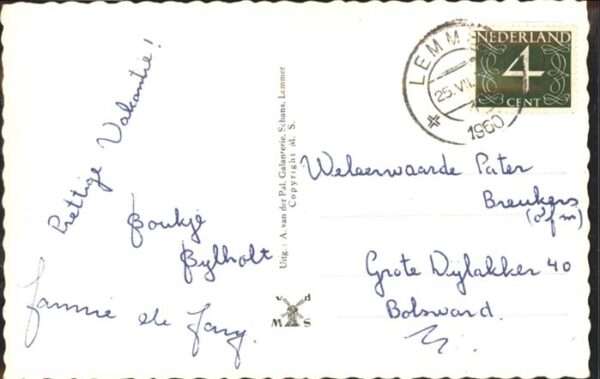 Prettige Vakantie!
Boukje
Bylholt
Jannie de Jong.
Uitg.: A. van der Pal, Galanterie, Schans, Lemmer
Copyright al. S.
v d
M S
LEMMER
25.VII
1960
NEDERLAND
4
CENT
Weleerwaarde Pater
Breukers
(ofm)
Grote Dijlakker 40
Bolsward.